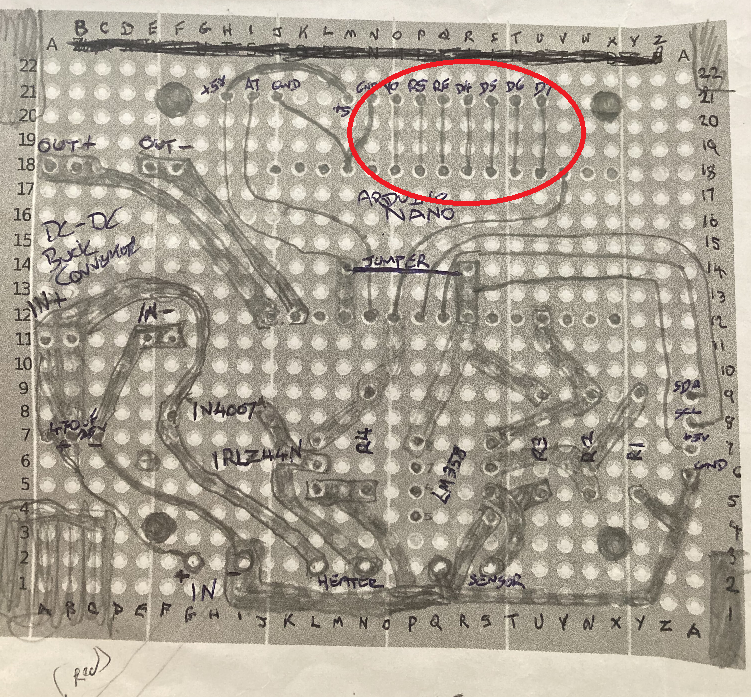 A B C D E F G H I J K L M N O P Q R S T U V W X Y Z A
22 22
21 +5V AT GND +5 GND VO RS RE D4 D5 D6 D7 21
20 20
19 OUT+ OUT- 19
18 18
17 ARDUINO 17
16 NANO 16
15 DC-DC 15
14 BUCK JUMPER 14
13 CONVERTOR 13
12 IN+ IN- 12
11 11
10 10
9 SDA 9
8 1N4007 8
7 470µF 25V R4 LM358 R3 R2 R1 +5V 7
6 IRLZ44N GND 6
5 5
4 4
3 3
2 + IN - HEATER SENSOR 2
1 1
A B C D E F G H I J K L M N O P Q R S T U V W X Y Z A
(RED)